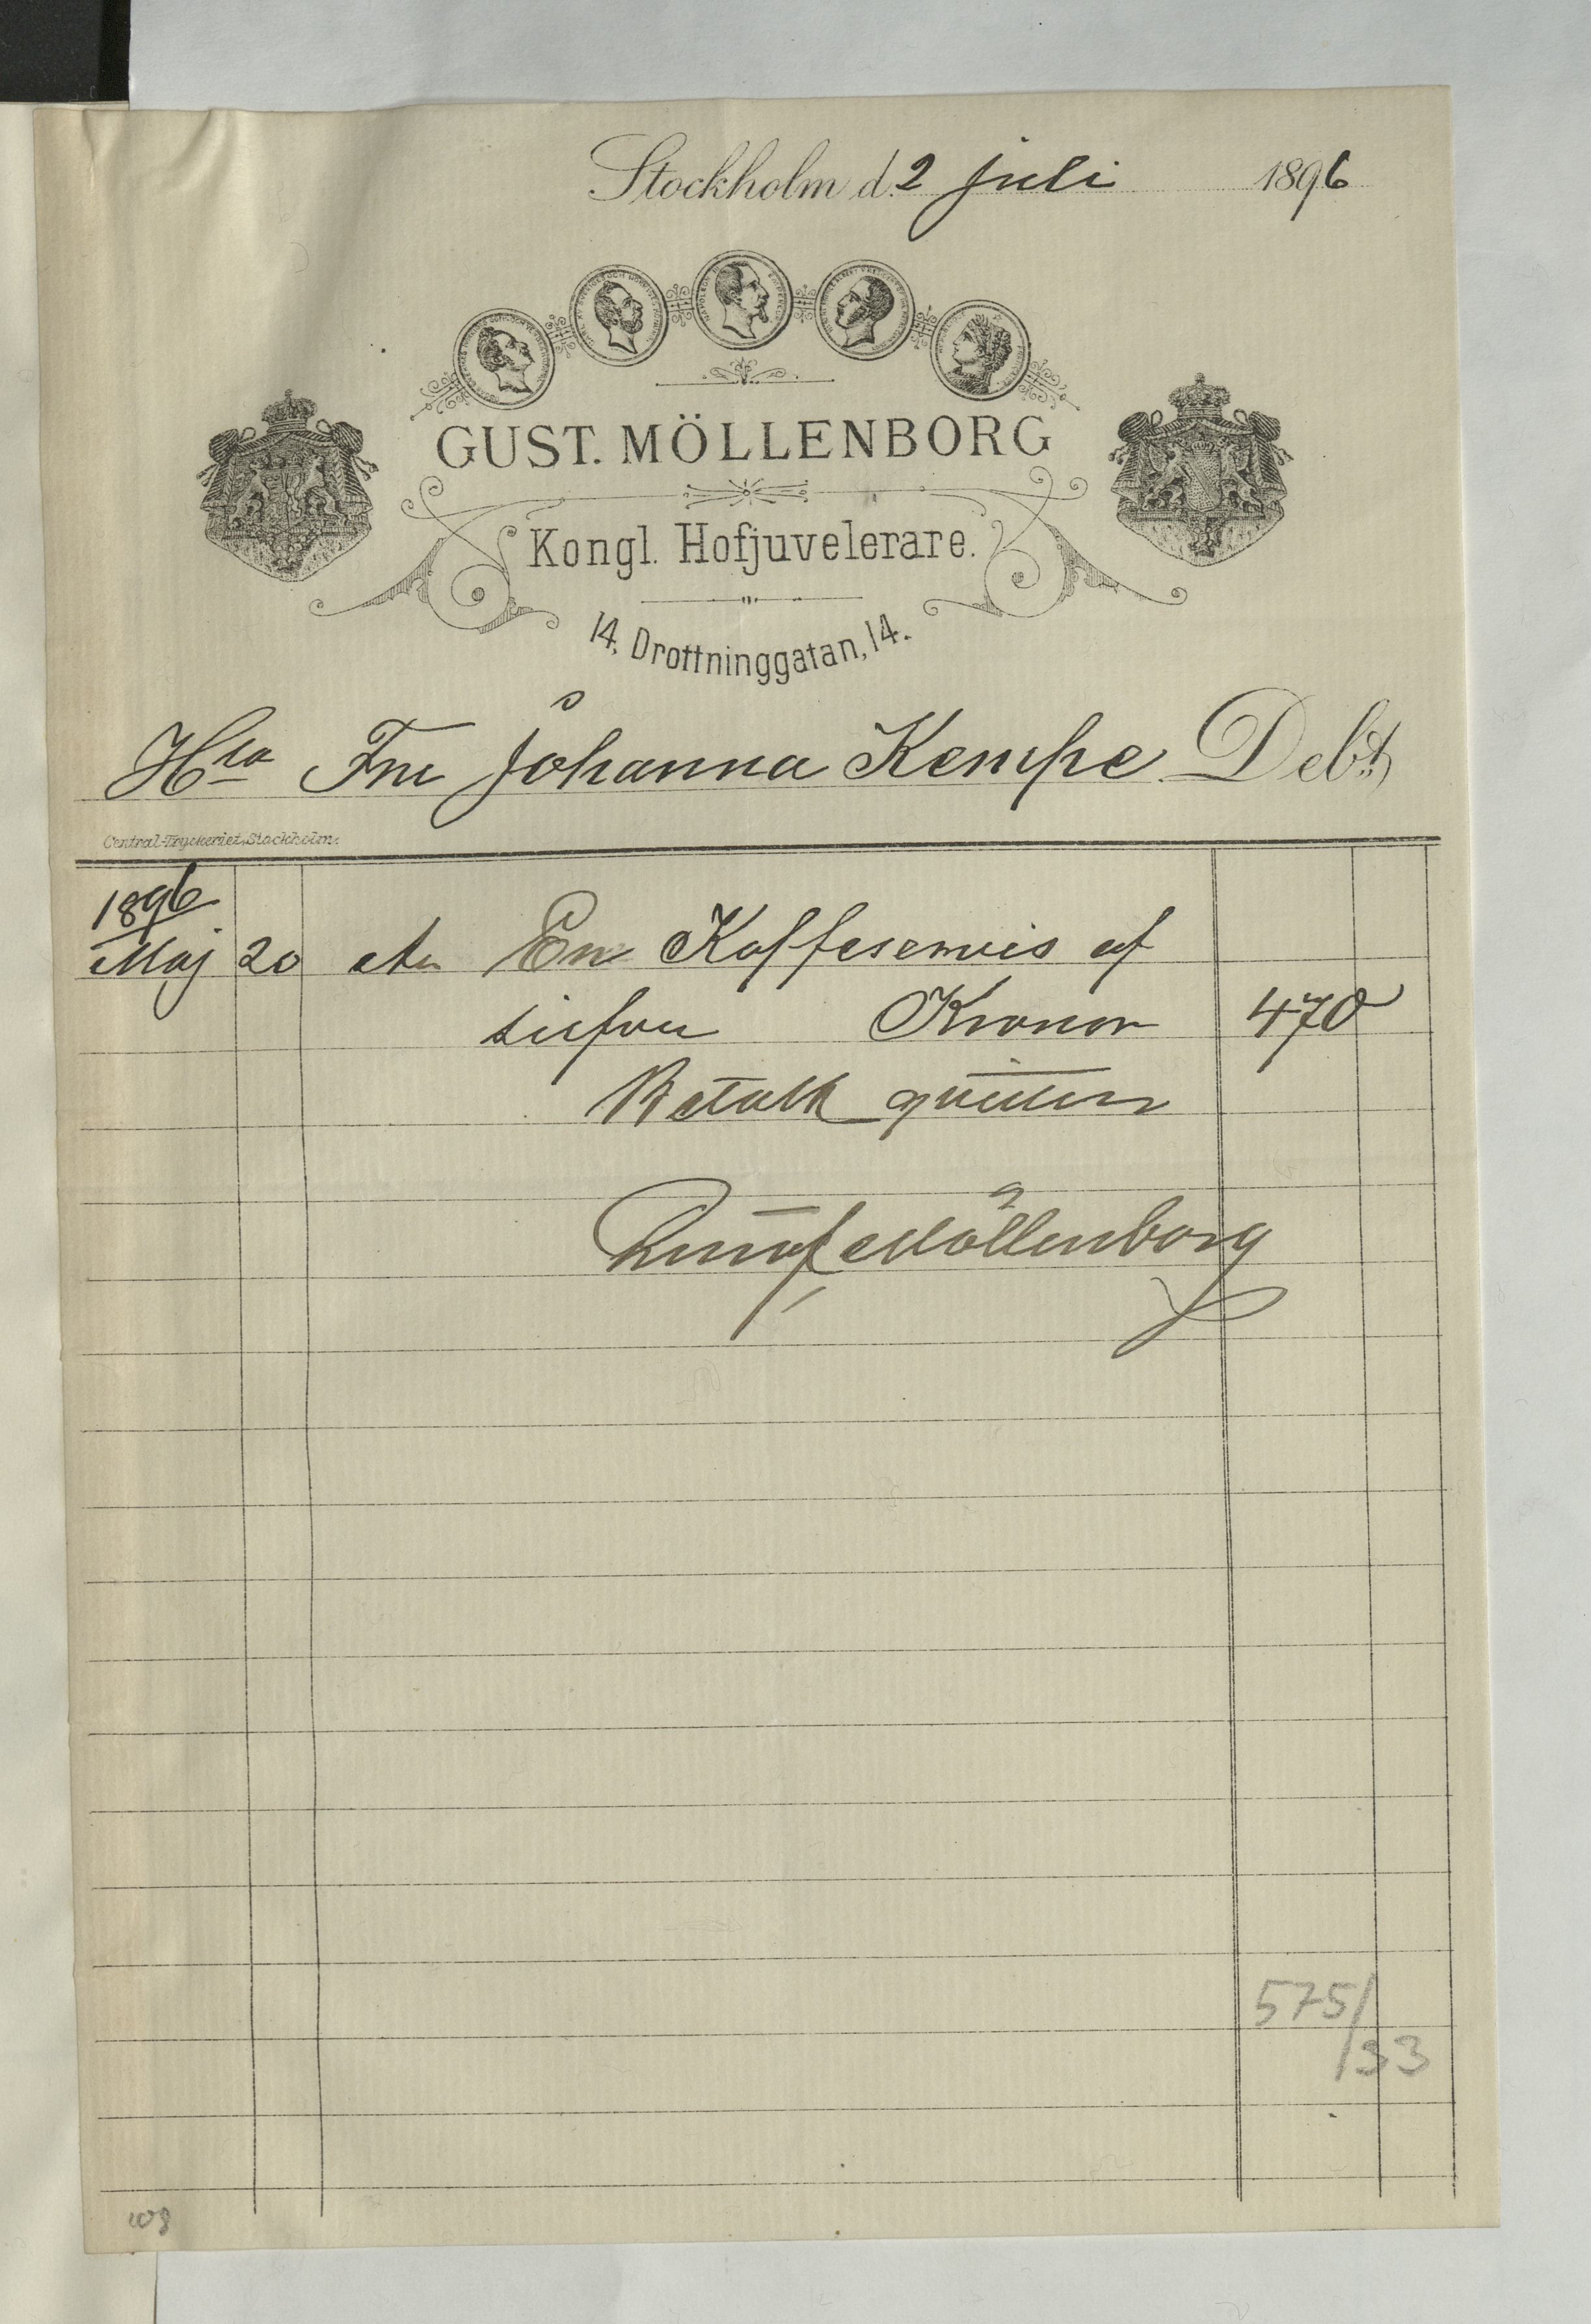 Stockholm d. 2 Juli 1896
GUST. MÖLLENBORG
Kongl. Hofjuvelerare.
14, Drottninggatan, 14.
Hra Fru Johanna Kempe Debt
Central-Tryckeriet, Stockholm.
1896
Maj 20 En Kaffeservis af
silfver Kronor 470
Betalt qvitteras
Möllenborg
575/
33